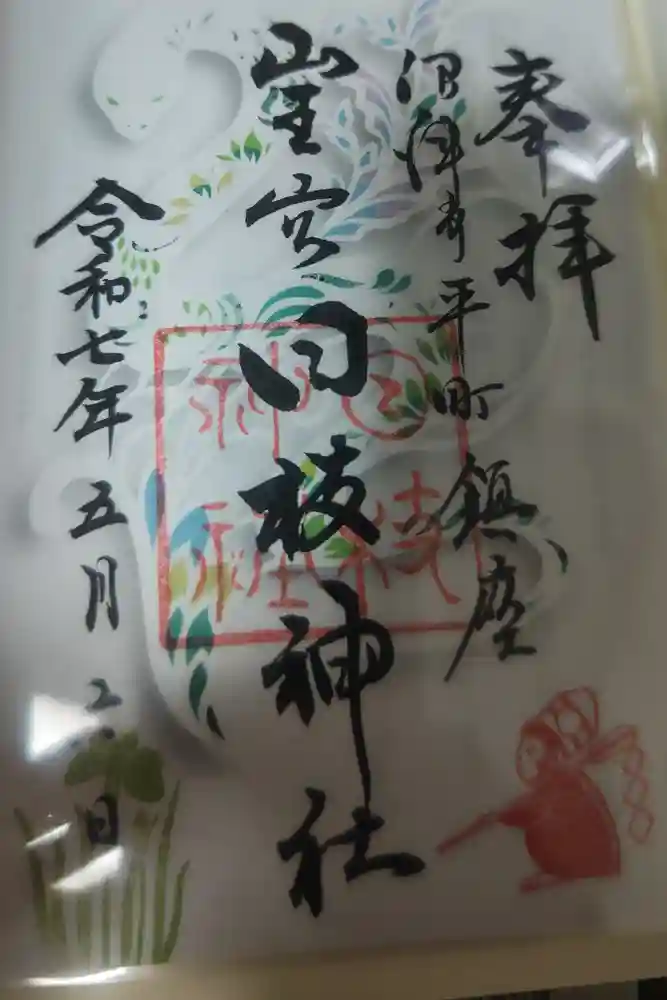 奉拝
沼津市平町鎮座
山王宮日枝神社
令和七年五月六日
日枝
神社